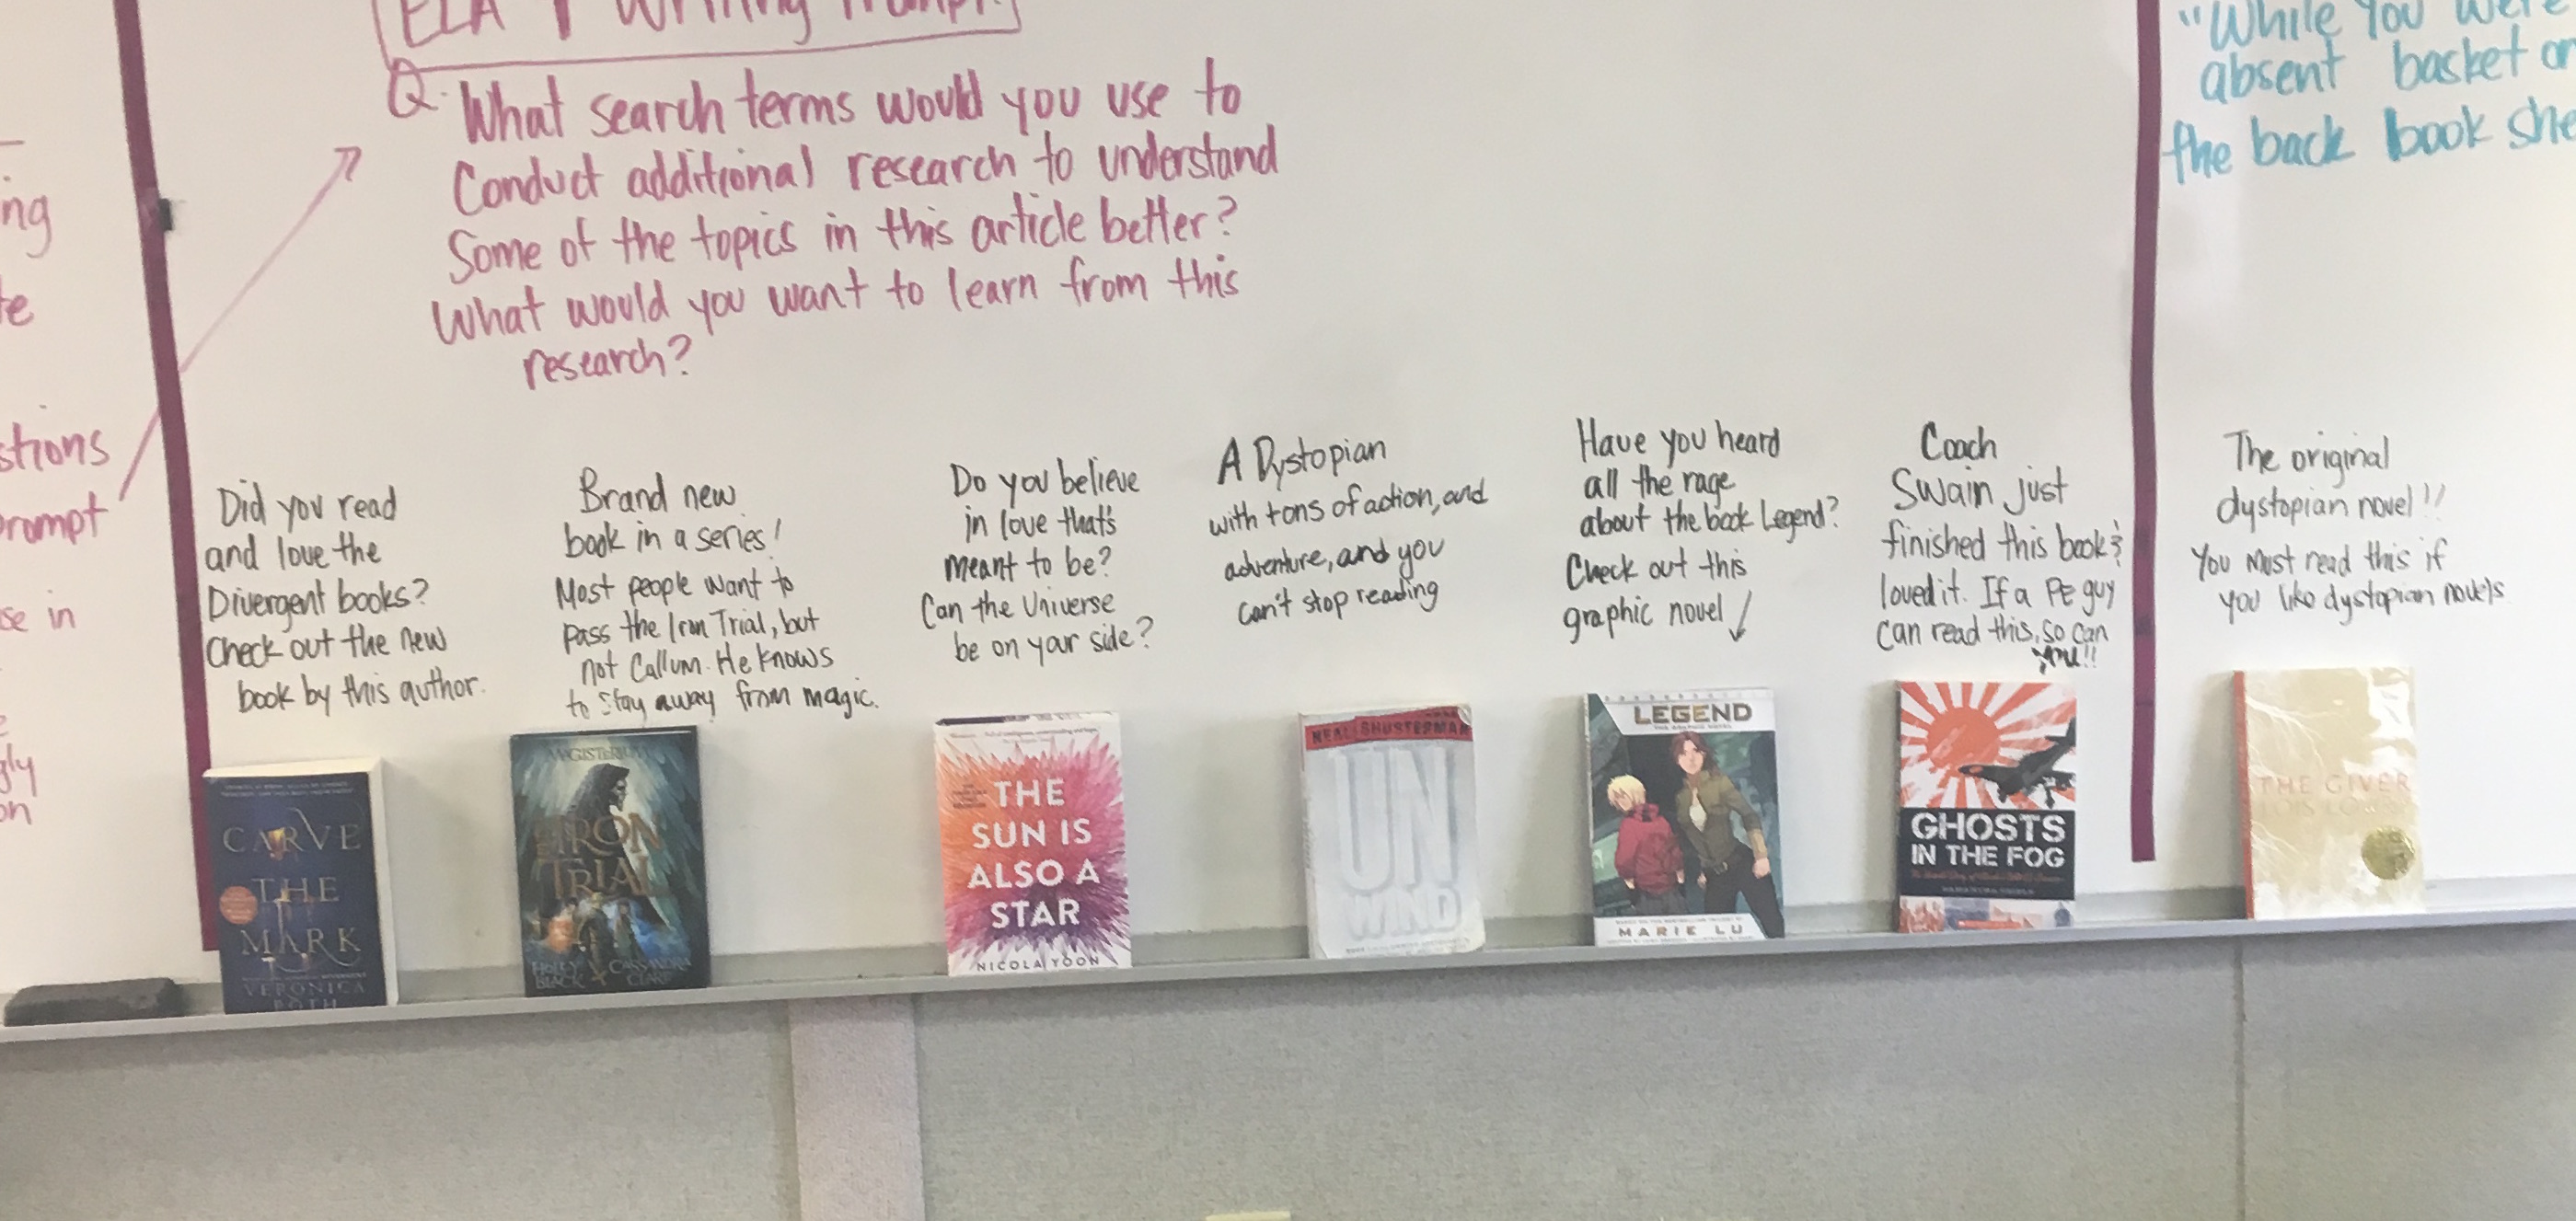 ELA Writing Prompt
Q. What search terms would you use to
Conduct additional research to understand
Some of the topics in this article better?
What would you want to learn from this
research?
"While you were
absent basket on
the back book she
ng
te
stions
rompt
se in
gly
on
Did you read
and love the
Divergent books?
Check out the new
book by this author.
Brand new
book in a series!
Most people want to
pass the Iron Trial, but
not Callum. He knows
to stay away from magic.
Do you believe
in love that's
meant to be?
Can the Universe
be on your side?
A Dystopian
with tons of action, and
adventure, and you
can't stop reading
Have you heard
all the rage
about the book Legend?
Check out this
graphic novel
Coach
Swain just
finished this book &
loved it. If a PE guy
can read this, so can
you!!
The original
dystopian novel!!
You must read this if
you like dystopian novels
CARVE
THE
MARK
VERONICA
ROTH
MAGISTERIUM
THE IRON
TRIAL
HOLLY BLACK
CASSANDRA CLARE
THE
SUN IS
ALSO A
STAR
NICOLA YOON
NEAL SHUSTERMAN
UN
WIND
LEGEND
THE GRAPHIC NOVEL
MARIE LU
GHOSTS
IN THE FOG
THE GIVER
LOIS LOWRY